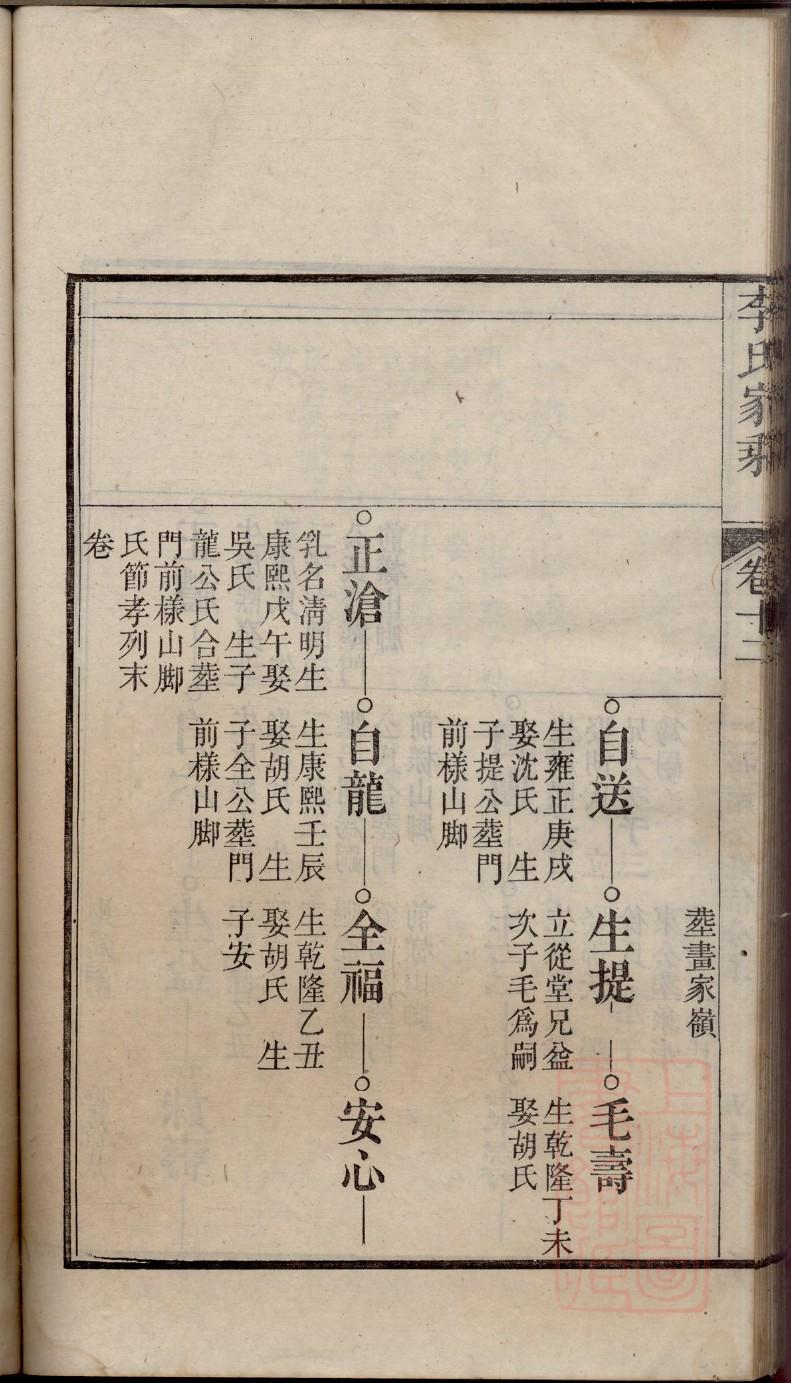 李氏家乘
卷十二
塟畫家嶺
自送
生雍正庚戌
娶沈氏 生
子提公塟門
前樣山脚
生提
立從堂兄益
次子毛爲嗣
毛壽
生乾隆丁未
娶胡氏
正滄
乳名清明生
康熙戊午娶
吳氏 生子
龍公氏合塟
門前樣山脚
氏節孝列末
卷
自龍
生康熙壬辰
娶胡氏 生
子全公塟門
前樣山脚
全福
生乾隆乙丑
娶胡氏 生
子安
安心